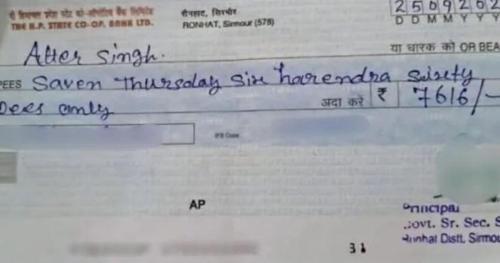 दी हिमाचल प्रदेश स्टेट को-ऑपरेटिव बैंक लिमिटेड
THE H.P. STATE CO-OP. BANK LTD.
रौनहाट, सिरमौर
RONHAT, Sirmour (578)
2 5 0 9 2 0 2
D D M M Y Y Y
Atter Singh.
या धारक को OR BEA
EES Saven Thursday Six harendra Seixty
Dees only
अदा करें ₹ 7616/-
IFS Code
AP
Principal
Govt. Sr. Sec. S
Ronhat Distt. Sirmou
31